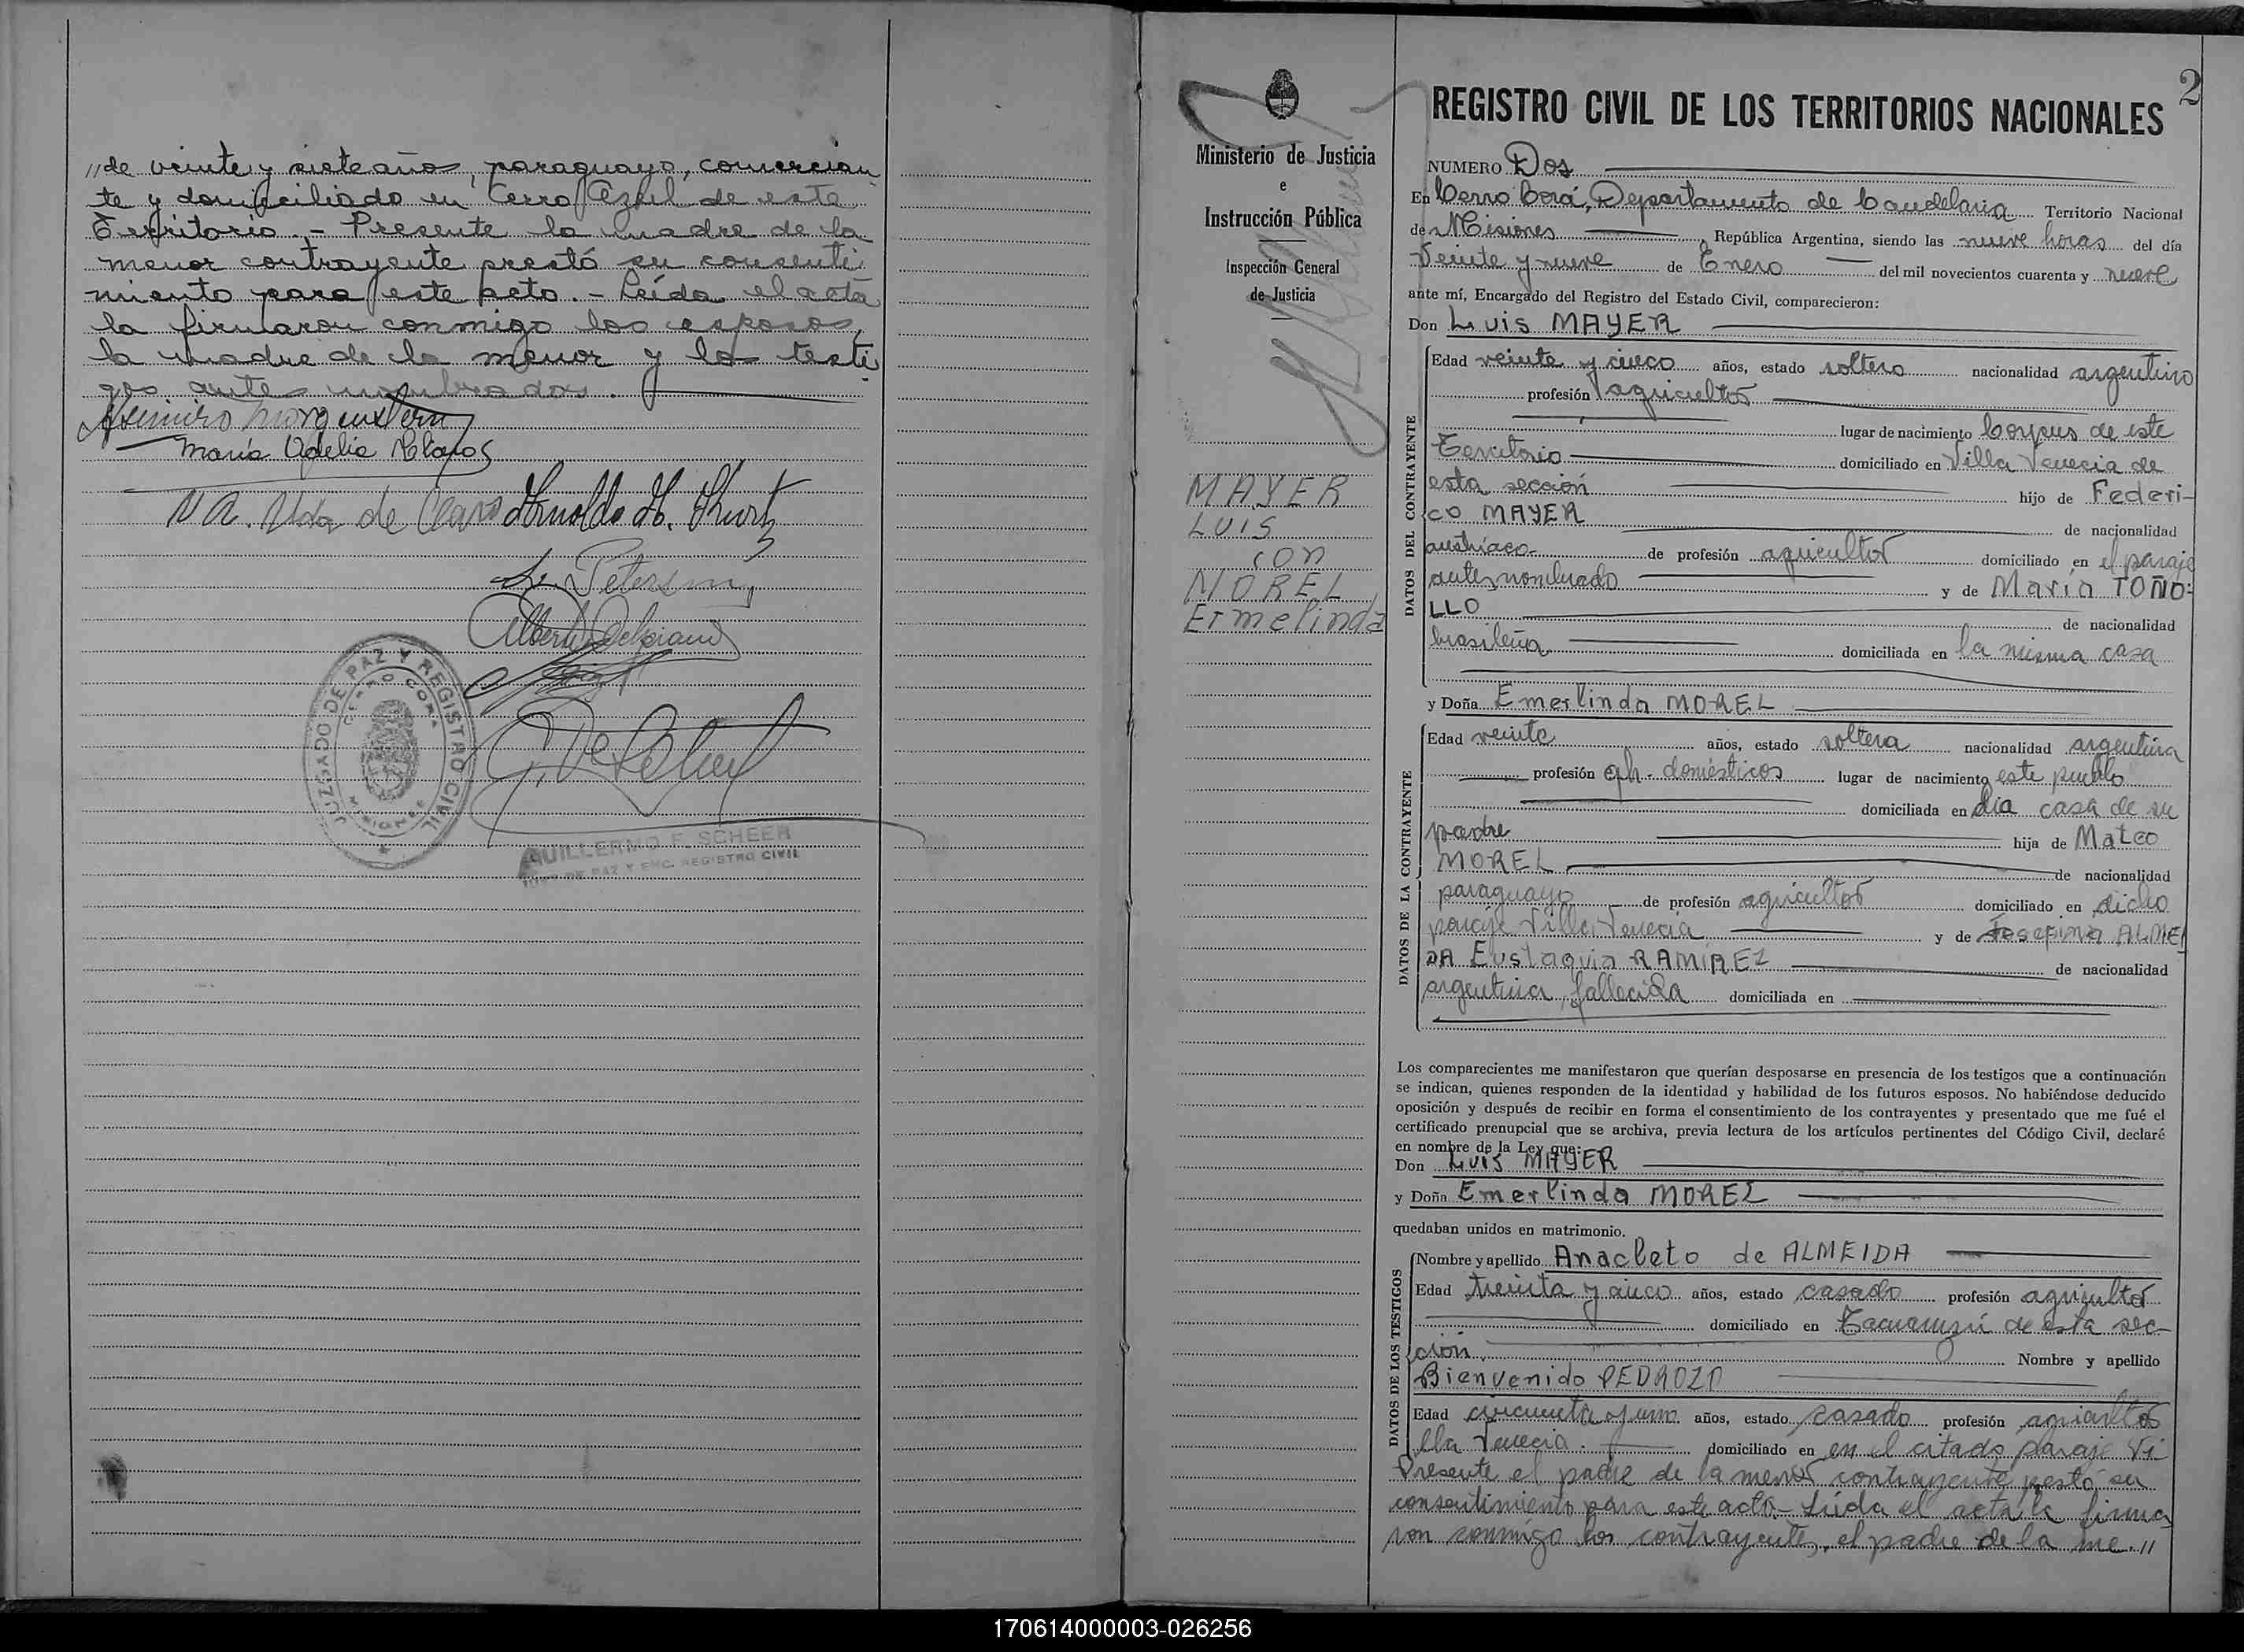 "de veinte y siete años, paraguayo, comercian
te y domiciliado en Cerro Azul de este
Territorio.- Presente la madre de la
menor contrayente prestó su consenti
miento para este acto.- Leída el acta
la firmaron conmigo los esposos,
la madre de la menor y los testi
gos antes nombrados.
Morgenstern
María Adelia Claros
Vda de Claro Arnoldo H. Kurtz
Petersen
JUZGADO DE PAZ Y REGISTRO CIVIL
CERRO CORA
MISIONES
GUILLERMO F. SCHEER
JUEZ DE PAZ Y ENC. REGISTRO CIVIL
2
Ministerio de Justicia
e
Instrucción Pública
Inspección General
de Justicia
MAYER
LUIS
con
MOREL
Ermelinda
REGISTRO CIVIL DE LOS TERRITORIOS NACIONALES
NUMERO Dos
En Cerro Corá, Departamento de Candelaria Territorio Nacional
de Misiones República Argentina, siendo las nueve horas del día
Veinte y nueve de Enero del mil novecientos cuarenta y nueve
ante mí, Encargado del Registro del Estado Civil, comparecieron:
Don Luis MAYER
DATOS DEL CONTRAYENTE
Edad veinte y cinco años, estado soltero nacionalidad argentino
profesión agricultor
lugar de nacimiento Corpus de este
Territorio domiciliado en Villa Venecia de
esta sección hijo de Federi-
co MAYER de nacionalidad
austríaco de profesión agricultor domiciliado en el paraje
antes nombrado y de María TOÑO-
LLO de nacionalidad
brasileña domiciliada en la misma casa
y Doña Emerlinda MOREL
DATOS DE LA CONTRAYENTE
Edad veinte años, estado soltera nacionalidad argentina
profesión q.h. domésticos lugar de nacimiento este pueblo
domiciliada en la casa de su
padre hija de Mateo
MOREL de nacionalidad
paraguayo de profesión agricultor domiciliado en dicho
paraje Villa Venecia y de Josefina ALMEI
DA Eustaquia RAMIREZ de nacionalidad
argentina, fallecida domiciliada en
Los comparecientes me manifestaron que querían desposarse en presencia de los testigos que a continuación
se indican, quienes responden de la identidad y habilidad de los futuros esposos. No habiéndose deducido
oposición y después de recibir en forma el consentimiento de los contrayentes y presentado que me fué el
certificado prenupcial que se archiva, previa lectura de los artículos pertinentes del Código Civil, declaré
en nombre de la Ley que:
Don Luis MAYER
y Doña Emerlinda MOREL
quedaban unidos en matrimonio.
DATOS DE LOS TESTIGOS
Nombre y apellido Anacleto de ALMEIDA
Edad treinta y cinco años, estado casado profesión agricultor
domiciliado en Tacuaruzú de esta sec-
ción Nombre y apellido
Bienvenido PEDROZO
Edad cincuenta y uno años, estado casado profesión agricultor
lla Venecia. domiciliado en en el citado paraje Vi
Presente el padre de la menor contrayente prestó su
consentimiento para este acto.- Leída el acta la firma
ron conmigo los contrayentes, el padre de la me."
170614000003-026256